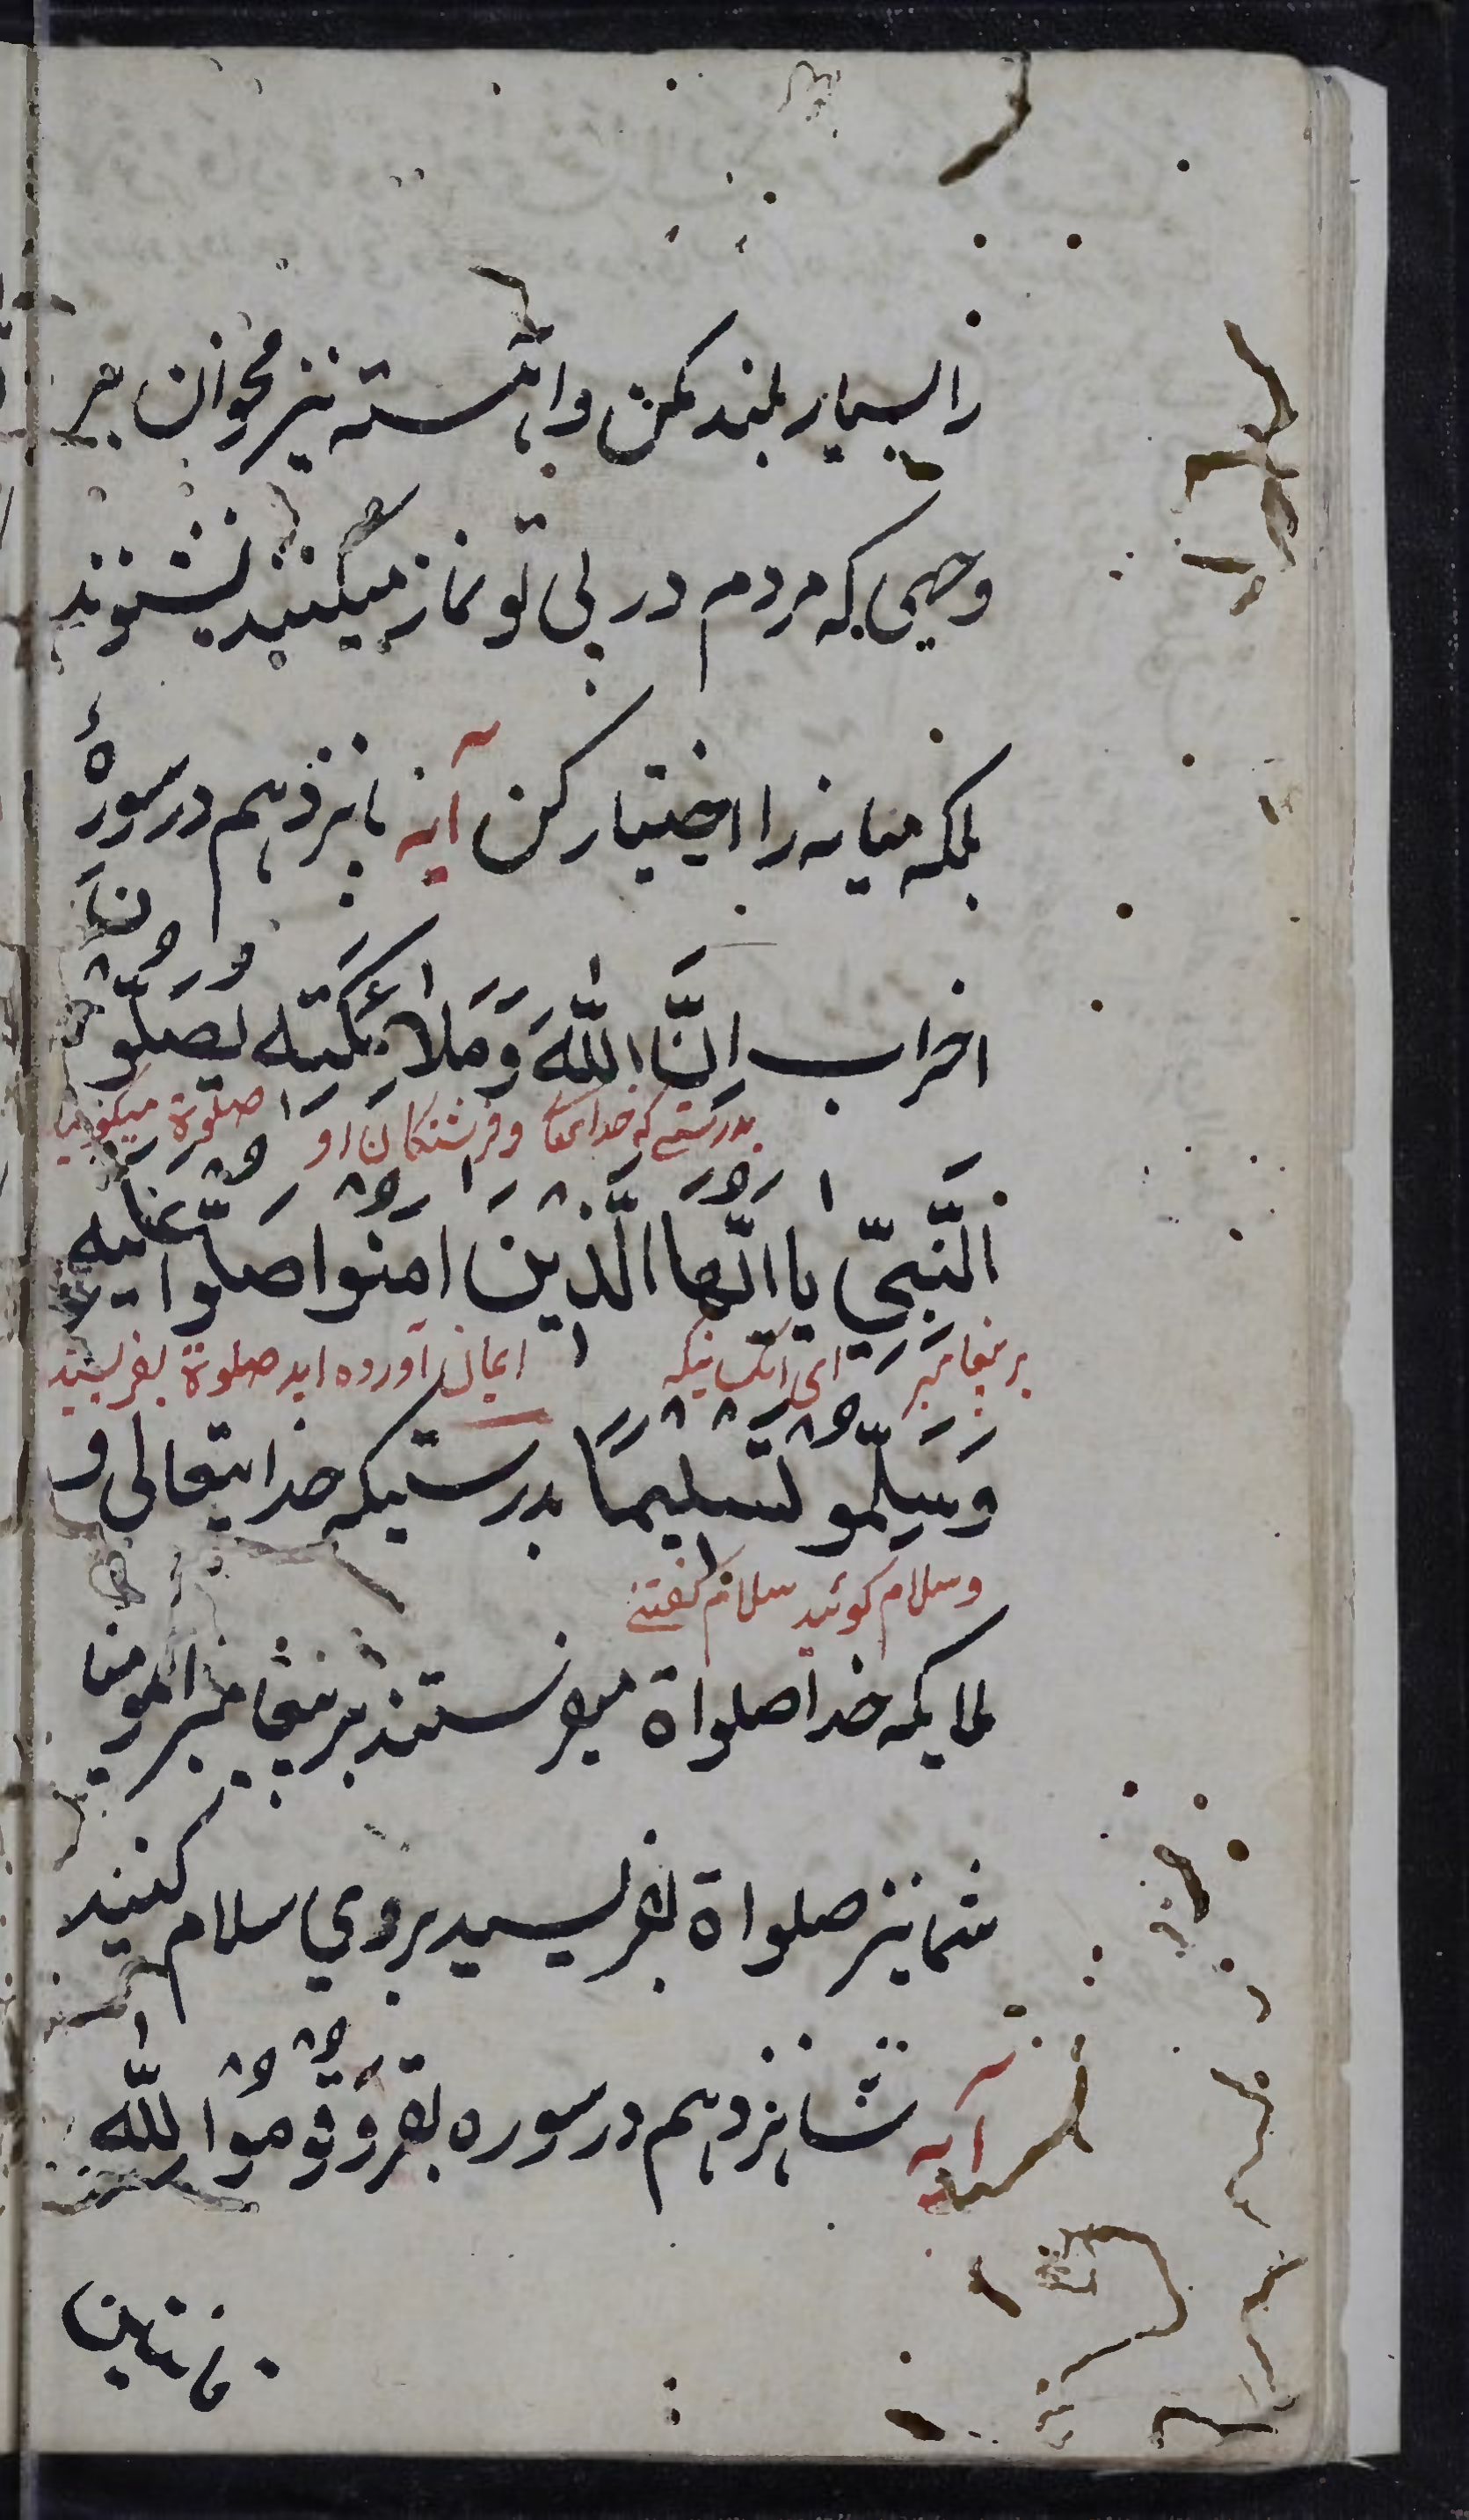 را بسیار بلند مکن و آهسته نیز مخوان بر
وجهی که مردم در پی تو نماز میکنند نشنوند
بلکه میانه را اختیار کن آیه پانزدهم در سورهٔ
احزاب اِنَّ اللّٰهَ وَمَلائِکَتَهُ یُصَلُّونَ
بدرستی که خدایتعالی و فرشتگان او صلوة میکنند
اَلنَّبِیِّ یا ایُّها الَّذینَ امَنُوا صَلُّوا عَلَیهِ
بر پیغامبر ای انکسانیکه ایمان آورده اید صلوة بفرستید
وَسَلِّمُو تَسْلیمًا بدرستیکه خدایتعالی و
وسلام کوئید سلام کفتنی
ملایکه خدا صلواة میفرستند بر پیغامبر ای مومنان
شما نیز صلواة بفرستید بروی سلام کنید
آیه شانزدهم در سوره بقر وَقُومُوا لِلّٰهِ
قانتین